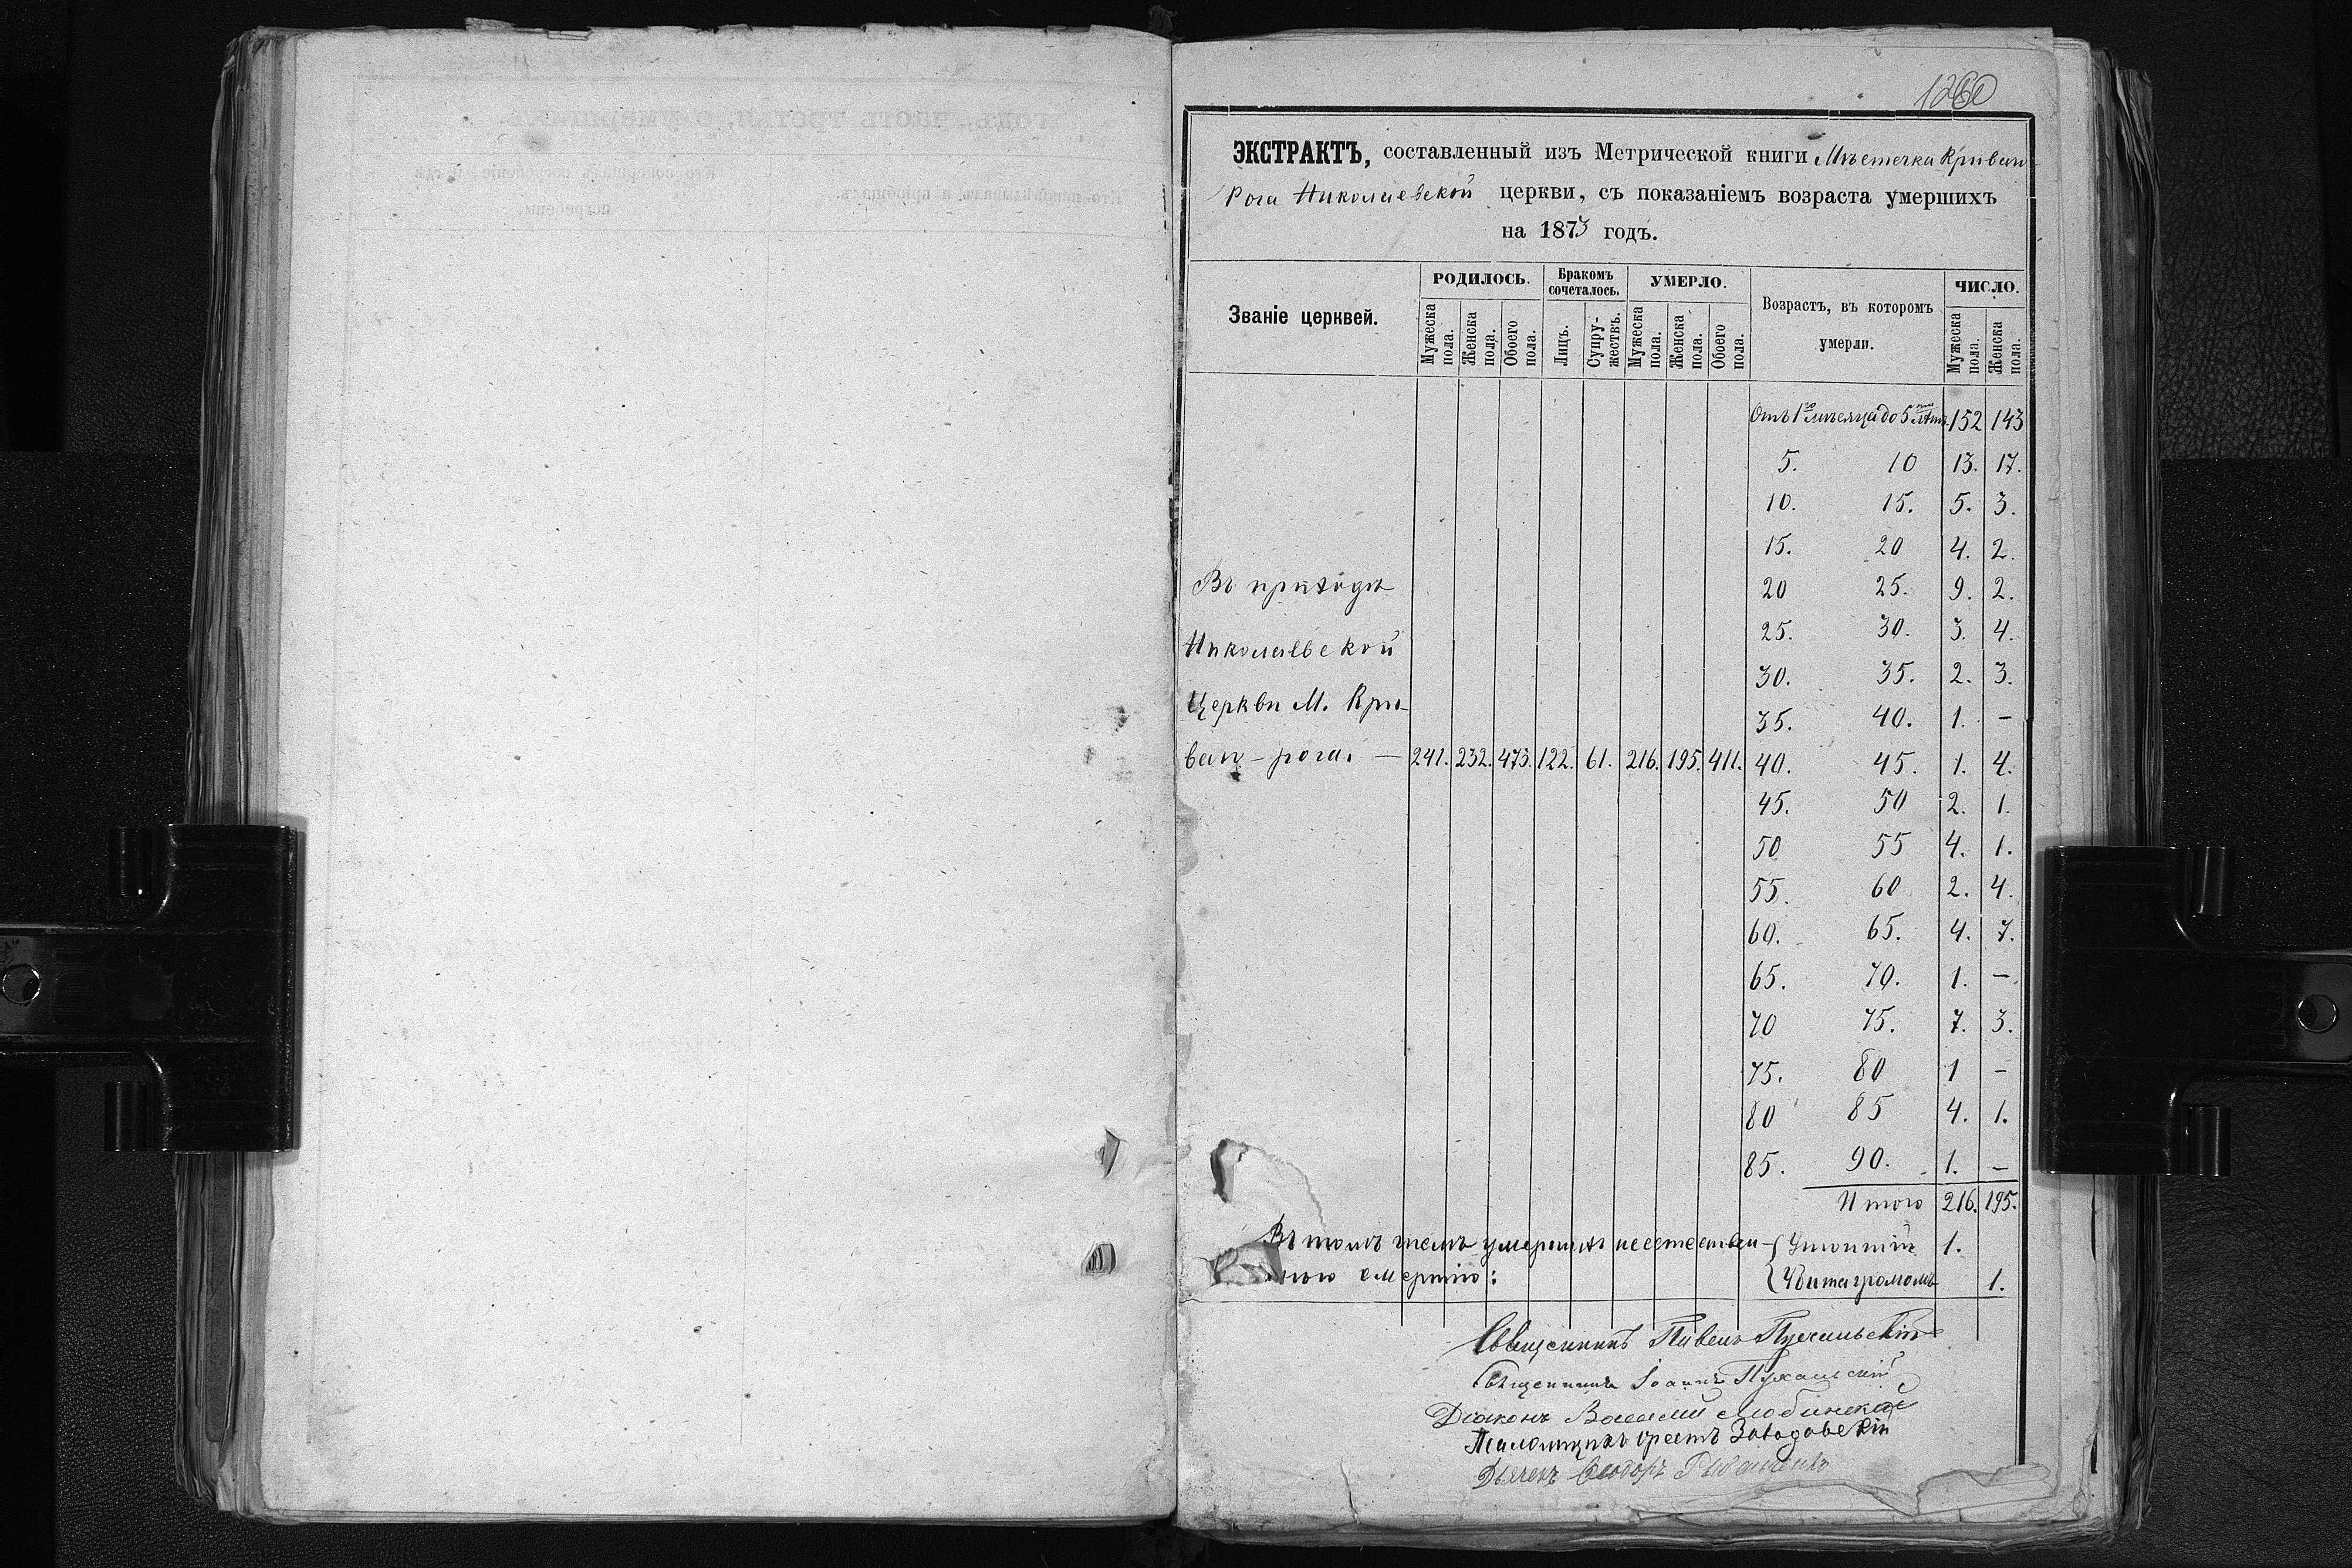 1260
ЭКСТРАКТЪ, составленный изъ Метрической книги Мѣстечка Криваго
Рога Николаевской церкви, съ показаніемъ возраста умершихъ
на 1873 годъ.
Званіе церквей. РОДИЛОСЬ. Бракомъ сочеталось. УМЕРЛО. Возрастъ, въ которомъ умерли. ЧИСЛО.
Мужеска пола. Женска пола. Обоего пола. Лицъ. Супружествъ. Мужеска пола. Женска пола. Обоего пола. Мужеска пола. Женска пола.
Отъ 1го мѣсяца до 5ти лѣтъ 152 143
5. 10 13. 17.
10. 15. 5. 3.
15. 20 4. 2.
Въ приходѣ 20 25. 9. 2.
25. 30. 3. 4.
Николаевской
30. 35. 2. 3.
Церкви М. Кри-
35. 40. 1. –
ваго-рога. — 241. 232. 473. 122. 61. 216. 195. 411. 40. 45. 1. 4.
45. 50 2. 1.
50 55 4. 1.
55. 60 2. 4.
60. 65. 4. 7.
65. 70. 1. –
70 75. 7. 3.
75. 80 1 –
80 85 4. 1.
85. 90. 1. –
Итого 216. 195.
Въ томъ числѣ умершихъ неестествен- 1.
ною смертію: Убита громомъ 1.
Священникъ Павелъ Пухальскій
Священникъ Іоаннъ Пухальскій
Діаконъ Василій
Псаломщикъ Орестъ Заводовскій
Дьячекъ Ѳеодоръ